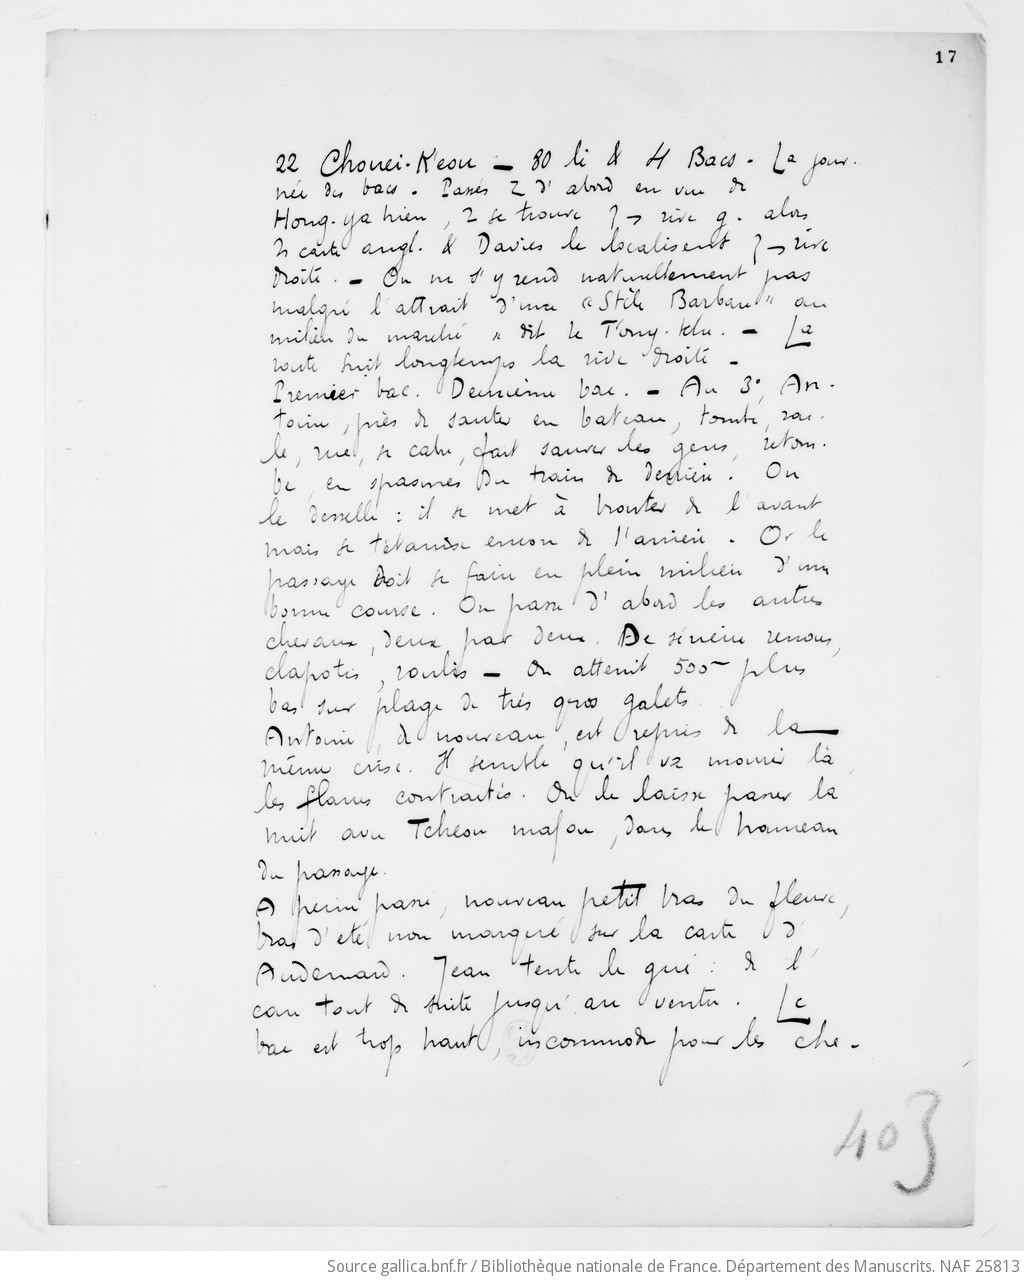 17
22 Chouei-K'eou — 80 li & 4 Bacs. La jour-
née des bacs. Passés d'abord en vue de
Hong-ya hien, se trouve rive g. alors
carte angl. & Davies le localisent rive
droite. — On ne s'y rend naturellement pas
malgré l'attrait d'une « Stèle Barbare » au
milieu du marché » dit le T'ong-tche. — La
route suit longtemps la rive droite —
Premier bac. Deuxième bac. — Au 3°, An-
toine, près de sauter en bateau, tombe, rou-
le, rue, se cabre, fait sauver les gens, retom-
be, en spasmes du train de derrière. On
le desselle : il se met à brouter de l'avant
mais se tétanise encore de l'arrière. Or le
passage doit se faire en plein milieu d'une
bonne course. On passe d'abord les autres
chevaux, deux par deux. De sévères remous,
clapotis, roulis — On atterrit 500 plus
bas sur plage de très gros galets.
Antoine, de nouveau, est repris de la
même crise. Il semble qu'il va mourir là,
les flancs contractés. On le laisse passer la
nuit avec Tcheou mafou, dans le hameau
du passage.
A peine passé, nouveau petit bras du fleuve,
bras d'été non marqué sur la carte d'
Audemard. Jean tente le gué : de l'
eau tout de suite jusqu'au ventre. Le
bac est trop haut, incommode pour les che-
403
Source gallica.bnf.fr / Bibliothèque nationale de France. Département des Manuscrits. NAF 25813